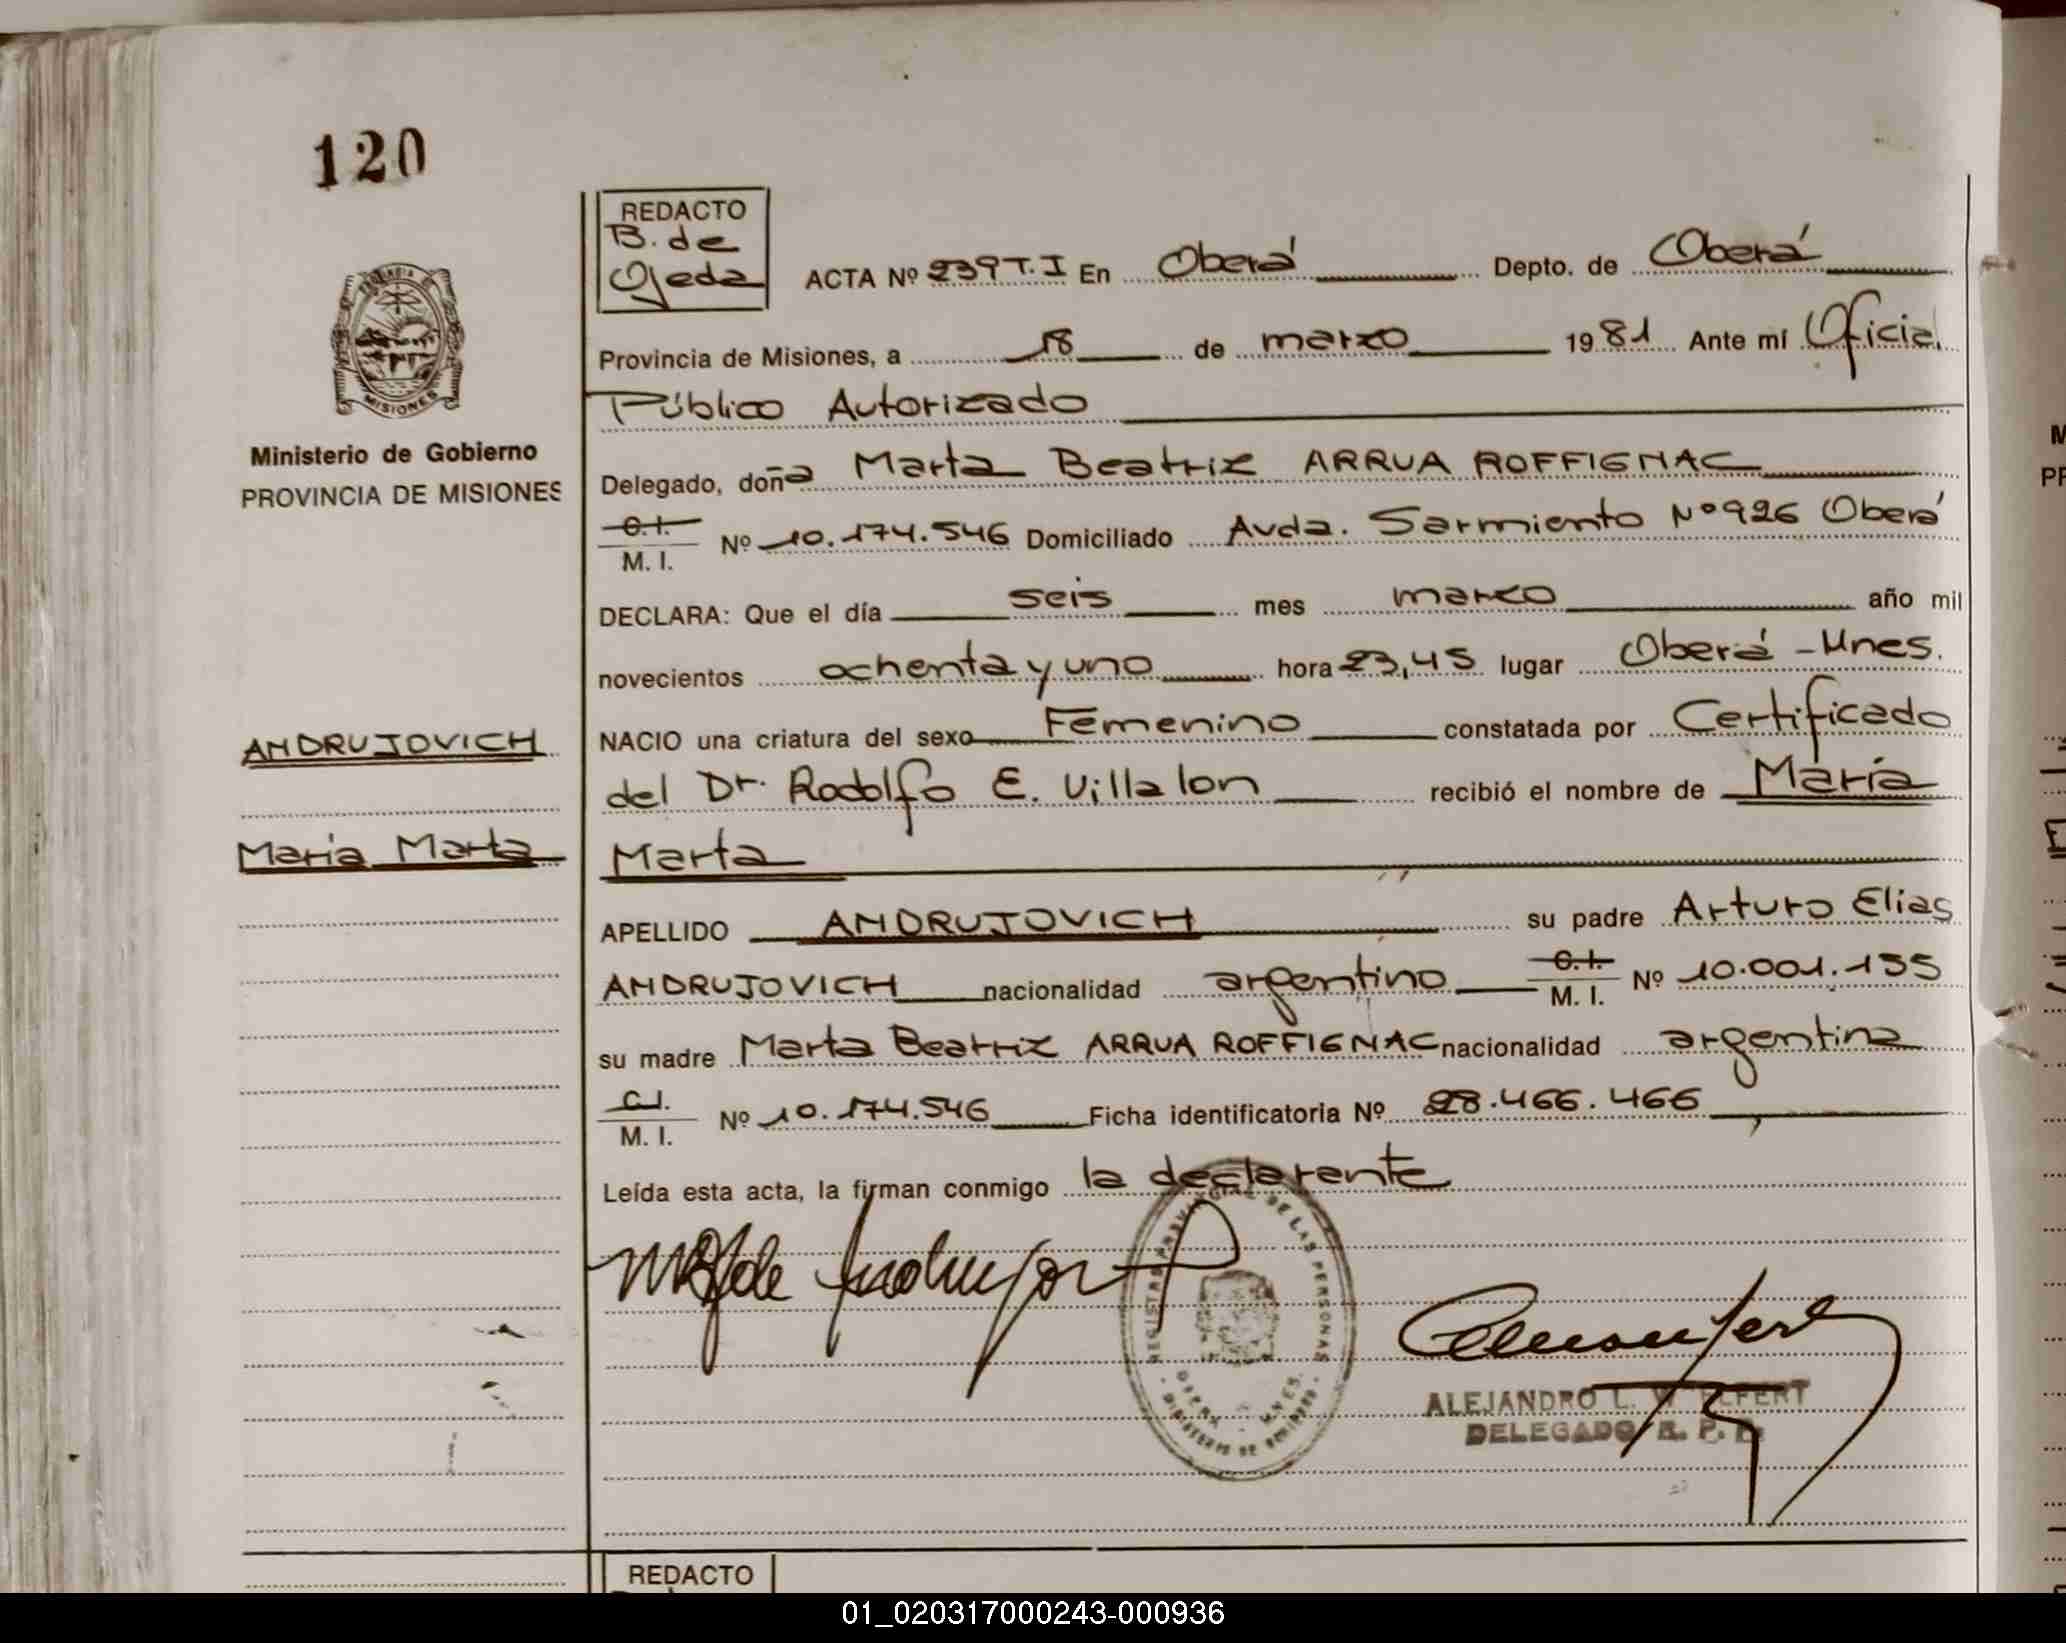 120
REDACTO
B. de
Ojeda
ACTA Nº 239 T.I En Oberá Depto. de Oberá
Provincia de Misiones, a 18 de marzo 1981 Ante mí Oficial
Público Autorizado
Delegado, doña Marta Beatriz ARRUA ROFFIGNAC
C.I.
M. I. Nº 10.174.546 Domiciliado Avda. Sarmiento Nº 926 Oberá
DECLARA: Que el día seis mes marzo año mil
novecientos ochenta y uno hora 23,45 lugar Oberá - Mnes.
NACIO una criatura del sexo Femenino constatada por Certificado
del Dr. Rodolfo E. Villalon recibió el nombre de María
Marta
APELLIDO ANDRUJOVICH su padre Arturo Elias
ANDRUJOVICH nacionalidad argentino C.I.
M. I. Nº 10.001.155
su madre Marta Beatriz ARRUA ROFFIGNAC nacionalidad argentina
C.I.
M. I. Nº 10.174.546 Ficha identificatoria Nº 28.466.466
Leída esta acta, la firman conmigo la declarante
PROVINCIA DE
MISIONES
Ministerio de Gobierno
PROVINCIA DE MISIONES
ANDRUJOVICH
María Marta
DE LAS PERSONAS
ALEJANDRO L.
DELEGADO R. P.
REDACTO
01_020317000243-000936